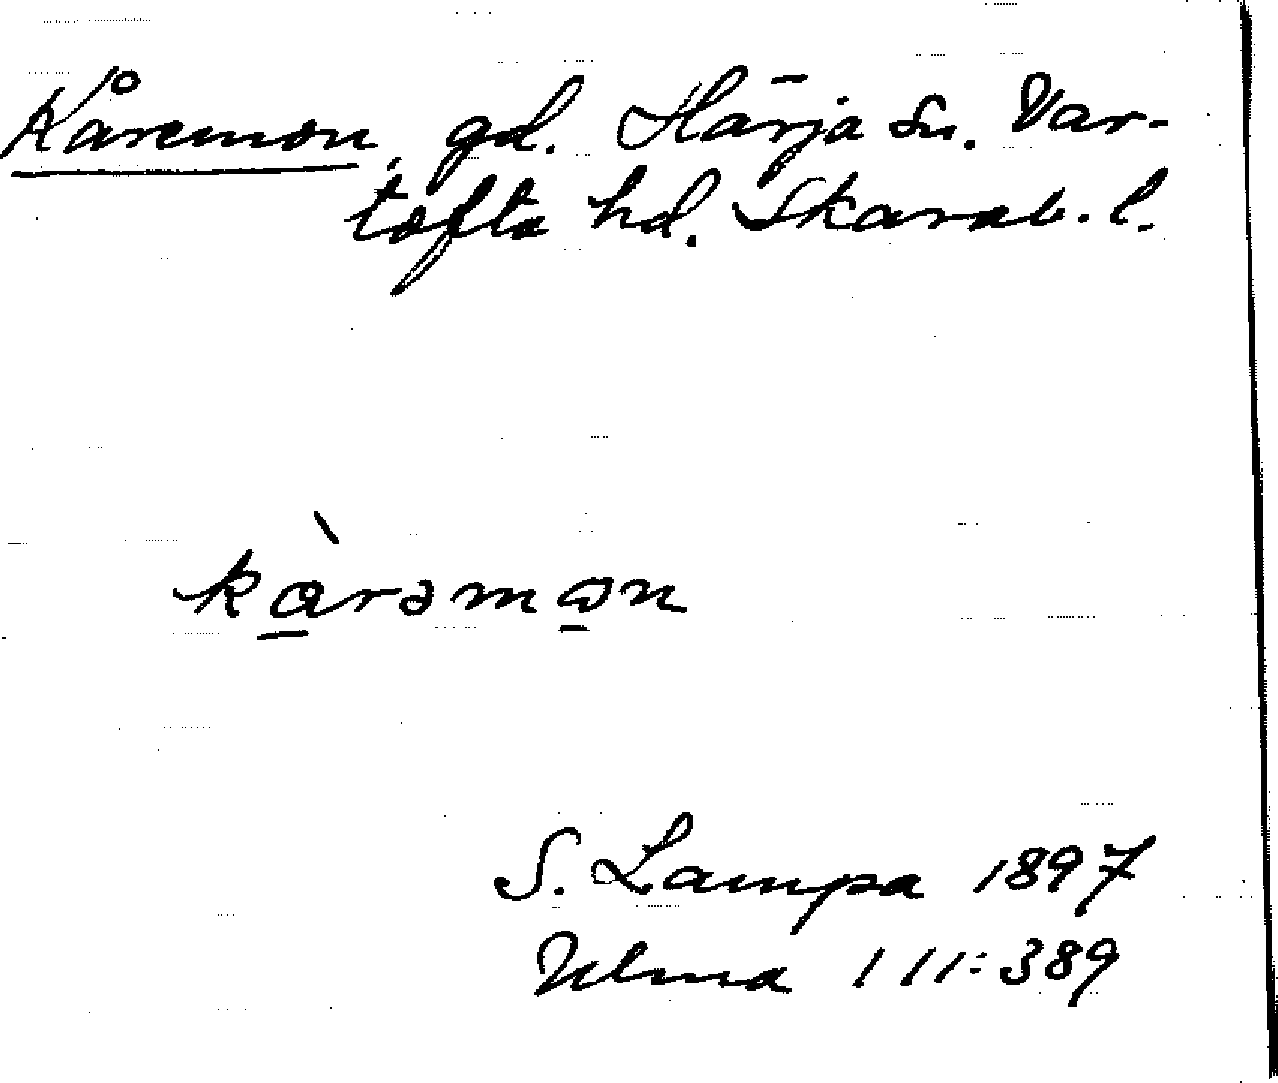 Kåremon, gd. Härja sn. Var-
tofta hd. Skarab. l.
kàrəmɷn
S. Lampa 1897
Ulma 111:389